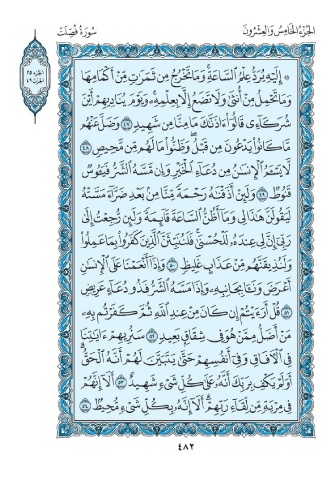 الجزء الخامس والعشرون
سورة فصلت
الجزء ٢٥
الحزب ٤٩
۞ إِلَيْهِ يُرَدُّ عِلْمُ السَّاعَةِ وَمَا تَخْرُجُ مِن ثَمَرَٰتٍ مِّنْ أَكْمَامِهَا
وَمَا تَحْمِلُ مِنْ أُنثَىٰ وَلَا تَضَعُ إِلَّا بِعِلْمِهِۦ وَيَوْمَ يُنَادِيهِمْ أَيْنَ
شُرَكَآءِى قَالُوٓا۟ ءَاذَنَّٰكَ مَا مِنَّا مِن شَهِيدٍ ٤٧ وَضَلَّ عَنْهُم
مَّا كَانُوا۟ يَدْعُونَ مِن قَبْلُ وَظَنُّوا۟ مَا لَهُم مِّن مَّحِيصٍ ٤٨
لَّا يَسْـَٔمُ الْإِنسَٰنُ مِن دُعَآءِ الْخَيْرِ وَإِن مَّسَّهُ الشَّرُّ فَيَـُٔوسٌ
قَنُوطٌ ٤٩ وَلَئِنْ أَذَقْنَٰهُ رَحْمَةً مِّنَّا مِنۢ بَعْدِ ضَرَّآءَ مَسَّتْهُ
لَيَقُولَنَّ هَٰذَا لِى وَمَآ أَظُنُّ السَّاعَةَ قَآئِمَةً وَلَئِن رُّجِعْتُ إِلَىٰ
رَبِّىٓ إِنَّ لِى عِندَهُۥ لَلْحُسْنَىٰ فَلَنُنَبِّئَنَّ الَّذِينَ كَفَرُوا۟ بِمَا عَمِلُوا۟
وَلَنُذِيقَنَّهُم مِّنْ عَذَابٍ غَلِيظٍ ٥٠ وَإِذَآ أَنْعَمْنَا عَلَى الْإِنسَٰنِ
أَعْرَضَ وَنَـَٔا بِجَانِبِهِۦ وَإِذَا مَسَّهُ الشَّرُّ فَذُو دُعَآءٍ عَرِيضٍ
٥١ قُلْ أَرَءَيْتُمْ إِن كَانَ مِنْ عِندِ اللَّهِ ثُمَّ كَفَرْتُم بِهِۦ
مَنْ أَضَلُّ مِمَّنْ هُوَ فِى شِقَاقٍۭ بَعِيدٍ ٥٢ سَنُرِيهِمْ ءَايَٰتِنَا
فِى الْءَافَاقِ وَفِىٓ أَنفُسِهِمْ حَتَّىٰ يَتَبَيَّنَ لَهُمْ أَنَّهُ الْحَقُّ
أَوَلَمْ يَكْفِ بِرَبِّكَ أَنَّهُۥ عَلَىٰ كُلِّ شَىْءٍ شَهِيدٌ ٥٣ أَلَآ إِنَّهُمْ
فِى مِرْيَةٍ مِّن لِّقَآءِ رَبِّهِمْ أَلَآ إِنَّهُۥ بِكُلِّ شَىْءٍ مُّحِيطٌۢ ٥٤
٤٨٢